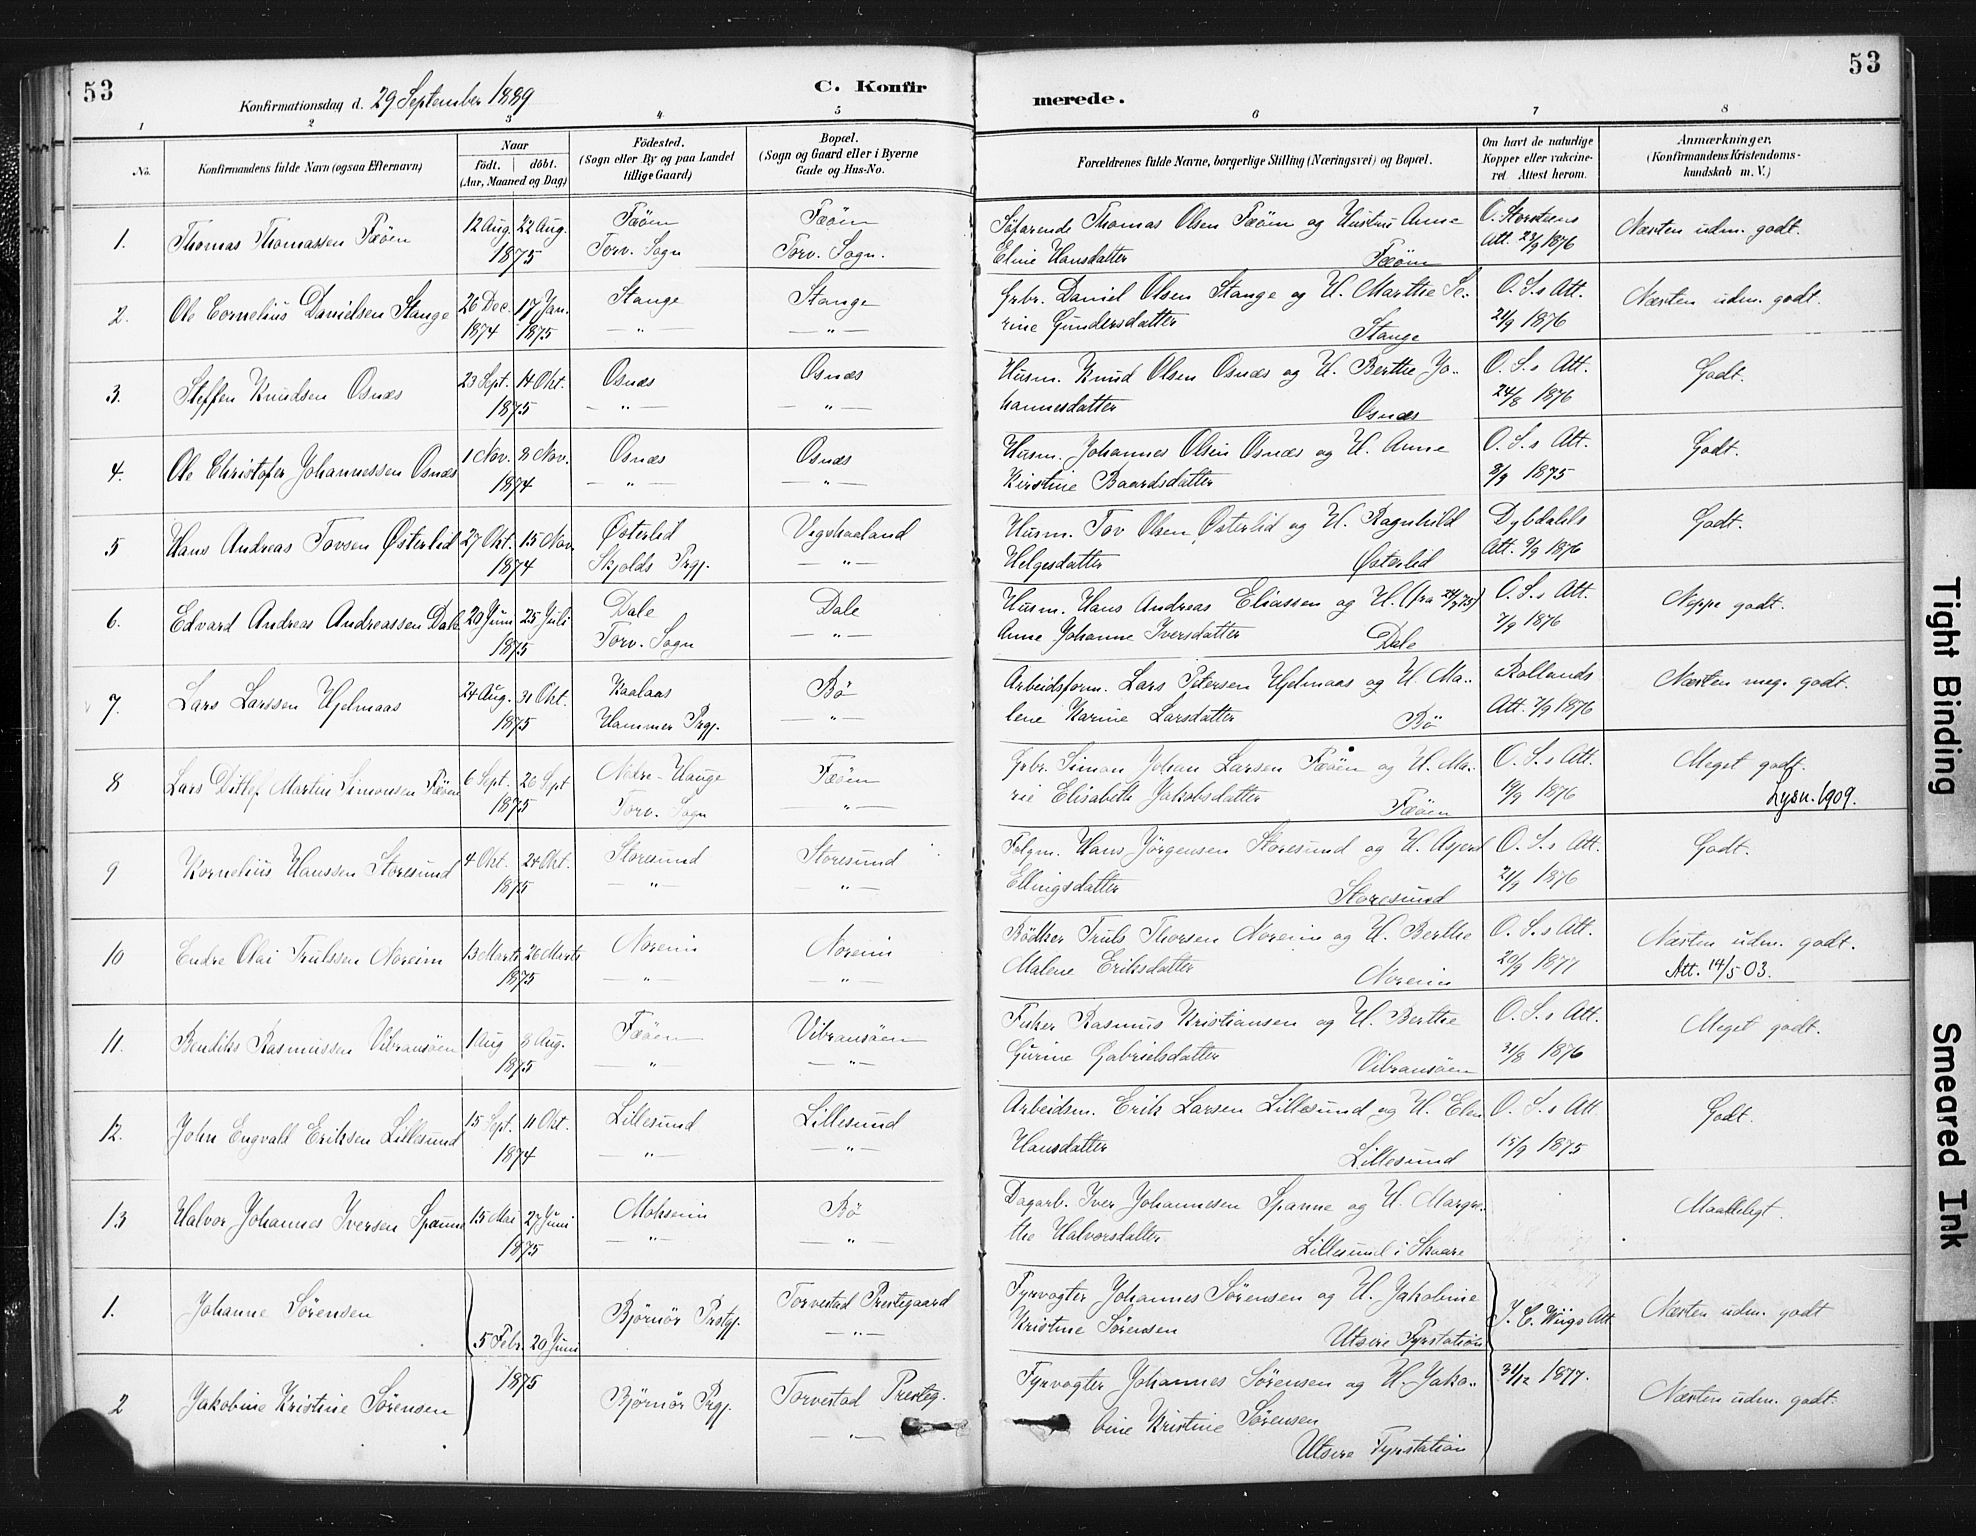 53
Konfirmationsdag d. 29 September 1889
C. Konfirmerede.
53
1 2 3 4 5 6 7 8
No.
Konfirmandens fulde Navn (ogsaa Efternavn)
Naar
født. døbt.
(Aar, Maaned og Dag)
Födested.
(Sogn eller By og paa Landet
tillige Gaard)
Bopæl.
(Sogn og Gaard eller i Byerne
Gade og Hus-No.
Forældrenes fulde Navne, borgerlige Stilling (Næringsvei) og Bopæl.
Om havt de naturlige
Kopper eller vakcine-
ret. Attest herom.
Anmærkninger,
(Konfirmandens Kristendoms-
kundskab m. V.)
1. Thomas Thomassen Fæøen
12 Aug. 22 Aug.
1875
Fæøen
Torv. Sogn
Fæøen
Torv. Sogn.
Søfarende Thomas Olsen Fæøen og Hustru Anne
Eline Hansdatter Fæøen
O. Storstens
Att. 23/9 1876
Næsten udm. godt.
2. Ole Cornelius Danielsen Stange
26 Dec. 17 Jan.
1874 1875
Stange
— „ —
Stange
— „ —
Grbr. Daniel Olsen Stange og H. Marthe Se-
rine Gundersdatter Stange
O. S.s Att.
21/9 1876
Næsten udm. godt.
3. Steffen Knudsen Osnæs
23 Sept. 14 Okt.
1875
Osnæs
— „ —
Osnæs
— „ —
Husm. Knud Olsen Osnæs og H. Berthe Jo-
hannesdatter Osnæs
O. S.s Att.
24/8 1876
Godt.
4. Ole Christofer Johannessen Osnæs
1 Nov. 8 Nov.
1874
Osnæs
— „ —
Osnæs
— „ —
Husm. Johannes Olsen Osnæs og H. Anne
Kirstine Baardsdatter
O. S.s Att.
3/9 1875
Godt.
5 Hans Andreas Tovsen Østerlid
27 Okt. 15 Nov.
1874
Østerlid
Skjolds Prgj.
Vigshaaland
— „ —
Husm. Tov Olsen Østerlid og H. Ragnhild
Helgesdatter Østerlid
Dybdahls
Att. 7/9 1876
Godt.
6. Edvard Andreas Andreassen Dale
20 Juni 25 Juli
1875
Dale
Torv. Sogn
Dale
— „ —
Husm. Hans Andreas Eliassen og H. (fra 24/9 75)
Anne Johanne Iversdatter Dale
O. S.s Att.
7/9 1876
Neppe godt.
7. Lars Larssen Hjelmaas
24 Aug. 31 Okt.
1875
Kaalaas
Hammer Prgj.
Bø
— „ —
Arbeidsform. Lars Petersen Hjelmaas og H. Ma-
lene Karine Larsdatter Bø
Rollands
Att. 7/9 1876
Næsten meg. godt.
8 Lars Ditlef Martin Simonsen Fæøen
6 Sept. 26 Sept
1875
Nedre-Hauge
Torv. Sogn
Fæøen
— „ —
Grbr. Simon Johan Larsen Fæøen og H. Ma-
rie Elisabeth Jakobsdatter Fæøen
O. S.s Att.
19/9 1876
Meget godt.
Lysn. 1909.
9 Kornelius Hanssen Storesund
4 Okt. 24 Okt.
1875
Storesund
— „ —
Storesund
— „ —
Folgm. Hans Jörgensen Storesund og H. Asjerd
Ellingsdatter Storesund
O. S.s Att.
21/9 1876
Godt.
10 Endre Olai Trulssen Noreim
13 Marts 26 Marts
1875
Noreim
— „ —
Noreim
— „ —
Bødker Truls Thorsen Noreim og H. Berthe
Malene Eriksdatter Noreim
O. S.s Att.
20/9 1877
Næsten udm. godt.
Att. 14/5 03.
11. Bendiks Rasmussen Vibransöen
1 Aug 8 Aug.
1875
Fæøen
— „ —
Vibransöen
— „ —
Fisker Rasmus Kristiansen og H. Berthe
Gurine Gabrielsdatter Vibransöen
O. S.s Att.
31/8 1876
Meget godt.
12. John Engvald Eriksen Lillesund
15 Sept. 11 Okt.
1874
Lillesund
— „ —
Lillesund
— „ —
Arbeidsm. Erik Larsen Lillesund og H. Elen
Hansdatter Lillesund
O. S.s Att.
15/9 1875
Godt.
13 Halvor Johannes Iversen Spanne
15 Mai 27 Juni
1875
Moksheim
— „ —
Bø
— „ —
Dagarb. Iver Johannesen Spanne og H. Margre-
the Halvorsdatter Lillesund i Skaare
Maadeligt.
1. Johanne Sørensen
5 Febr. 20 Juni
1875
Bjørnør Prstgj.
Torvestad Prestegaard
— „ —
Fyrvogter Johannes Sørensen og H. Jakobine
Kristine Sørensen Utsire Fyrstation
J. C. Wiigs Att
31/12 1877.
Næsten udm. godt
2 Jakobine Kristine Sørensen
Bjørnør Prgj.
Torvestad Presteg.
— „ —
Fyrvogter Johannes Sørensen og H. Jako-
bine Kristine Sørensen
Utsire Fyrstation
Næsten udm. godt.
Tight Binding
Smeared Ink